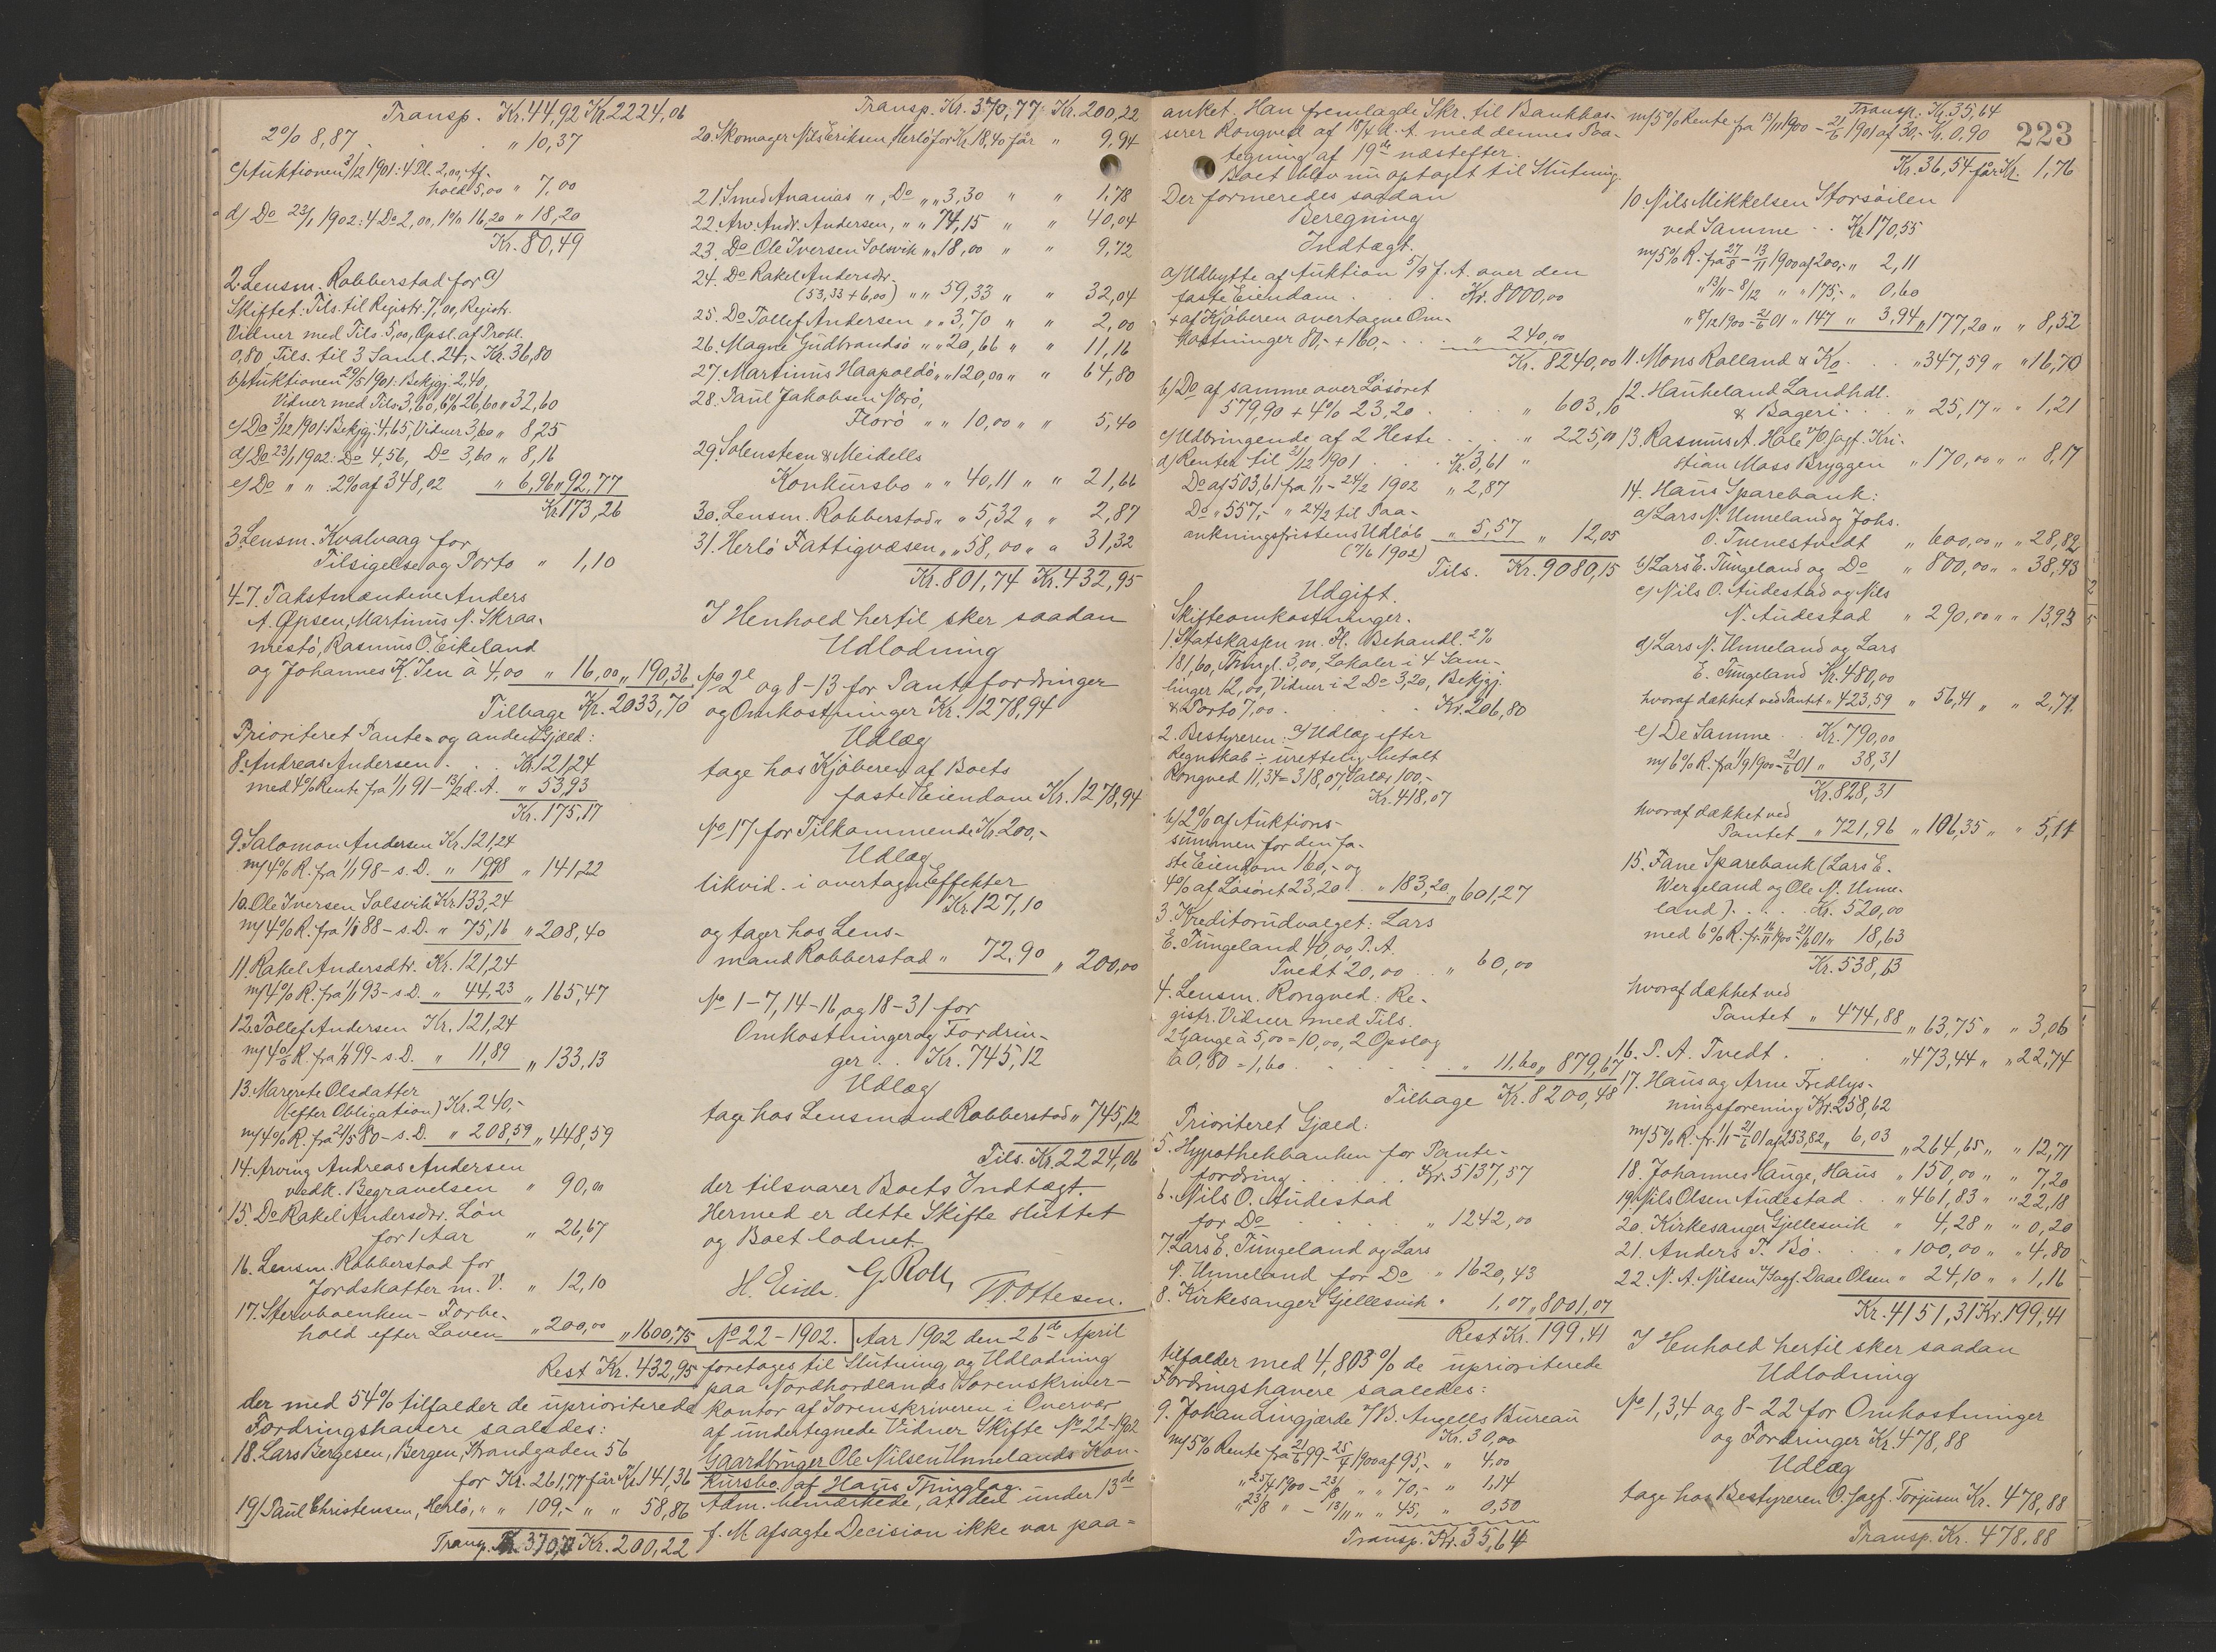 Transp. Kr. 44,92 Kr. 2224,06
2% 8,87 . . . " 10,37
c) Auktionen 3/12 1901: 4 Pl. 2,00, Af-
hold 5,00 " 7,00
d) Do 23/1 1902: 4 Do 2,00, 1% 16,20 " 18,20
Kr. 80,49
2. Lensm. Robberstad for a)
Skiftet: Tils. til Registr. 7,00, Registr.
Vidner med Tils. 5,00, Opsl. af Probl.
0,80, Tils. til 3 Saml. 24,- Kr. 36,80
b) Auktionen 29/5 1901: Bekjgj. 2,40,
Vidner med Tils. 3,60, 6% 26,60 " 32,60
c) Do 3/12 1901: Bekjgj. 4,65, Vidner 3,60 " 8,25
d) Do 23/1 1902: Do 4,56, Do 3,60 " 8,16
e) Do " " 2% af 348,02 " 6,96 " 92,77
Kr. 173,26
3. Lensm. Kvalvaag for
Tilsigelse og Porto " 1,10
4-7. Takstmændene Anders
A. Øpsen, Martinus N. Skraa-
mestø, Rasmus O. Eikeland
og Johannes K. Ten à 4,00 " 16,00 " 190,36
Tilbage Kr. 2033,70
Prioriteret Pante- og anden Gjæld:
8. Andreas Andersen . . Kr. 121,24
med 4% Rente fra 1/1 91 – 13/2 d. A. " 53,93
Kr. 175,17
9. Salomon Andersen Kr. 121,24
m/ 4% R. fra 1/1 98 – s. D. " 19,98 " 141,22
10. Ole Iversen Solsvik Kr. 133,24
m/ 4% R. fra 1/1 88 – s. D. " 75,16 " 208,40
11. Rakel Andersdtr. Kr. 121,24
m/ 4% R. fra 1/1 93 – s. D. " 44,23 " 165,47
12. Tollef Andersen Kr. 121,24
m/ 4% R. fra 1/9 99 – s. D. " 11,89 " 133,13
13. Margrete Olsdatter
(efter Obligation) Kr. 240,-
m/ 4% R. fra 21/5 80 – s. D. " 208,59 " 448,59
14. Arving Andreas Andersen
vedk. Begravelsen " 90,00
15. Do Rakel Andersdtr. Løn
for 1 Aar " 26,67
16. Lensm. Robberstad for
Jordskatter m. V. " 12,10
17. Stervboenken – Forbe-
hold efter Loven " 200,00 " 1600,75
Rest Kr. 432,95
der med 54% tilfalder de uprioriterede
Fordringshavere saaledes:
18. Lars Børgesen, Bergen, Strandgaden 56
for Kr. 261,77 får Kr. 141,36
19) Paul Christensen, Herlø, " " 109,- " " 58,86
Transp. Kr. 370,77 Kr. 200,22
Transp. Kr. 370,77 Kr. 200,22
20. Skomager Nils Eriksen, Herlø for Kr. 18,40 får " 9,94
21. Smed Ananias ", Do " " 3,30 " " 1,78
22. Arv. Andr. Andersen, " " 74,15 " " 40,04
23. Do Ole Iversen Solsvik " " 18,00 " " 9,72
24. Do Rakel Andersdtr.
(53,33 + 6,00) " " 59,33 " " 32,04
25. Do Tollef Andersen " " 3,70 " " 2,00
26. Magne Gudbrandsø " " 20,66 " " 11,16
27. Martinus Haapoldø " " 120,00 " " 64,80
28. Paul Jakobsen Nærø,
Florø " " 10,00 " " 5,40
29. Solensteen & Meidells
Konkursbo " " 40,11 " " 21,66
30. Lensm. Robberstad " " 5,32 " " 2,87
31. Herlø Fattigvæsen " " 58,00 " " 31,32
Kr. 801,74 Kr. 432,95
I Henhold hertil sker saadan
Udlodning
No 2e og 8-13 for Pantefordringer
og Omkostninger Kr. 1278,94
Udlæg
tage hos Kjøberen af Boets
faste Eiendom Kr. 1278,94
No 17 for Tilkommende Kr. 200,-
Udlæg
likvid. i overtagne Effekter
Kr. 127,10
og tager hos Lens-
mand Robberstad " 72,90 " 200,00
No 1-7, 14-16, og 18-31 for
Omkostninger og Fordrin-
ger . . Kr. 745,12
Udlæg
tage hos Lensmand Robberstad " 745,12
Tils. Kr. 2224,06
der tilsvarer Boets Indtægt.
Hermed er dette Skifte sluttet
og Boet lodnet.
H. Eide. G. Roll, T. Ottesen.
No 22 – 1902. Aar 1902 den 26de April
foretoges til Slutning og Udlodning
paa Nordhordlands Sorenskriver-
kontor af Sorenskriveren i Overvær
af undertegnede Vidner Skifte No 22-1902
Gaardbruger Ole Nilsen Unnelands Kon-
kursbo af Haus Thinglag.
Adm. bemærkede, at den under 13de
f. M. afsagte Decision ikke var paa-
anket. Han fremlagde Skr. til Bankkas-
serer Rongved af 18/4 d. A. med dennes Paa-
tegning af 19de næstefter.
Boet blev nu optaget til Slutning.
Der formeredes saadan
Beregning
Indtægt.
a) Udbytte af Auktion 5/9 f. A. over den
faste Eiendom . . . Kr. 8000,00
+ af Kjøberen overtagne Om-
kostninger 80,- + 160,- . . . " 240,00
Kr. 8240,00
b) Do af samme over Løsøret
579,90 + 4% 23,20 . . . " 603,10
c) Udbringende af 2 Heste . . . " 225,00
d) Renter til 31/12 1901 . . . Kr. 3,61 "
Do af 503,61 fra 1/1 – 24/2 1902 " 2,87
Do " 557,- " 24/2 til Paa-
ankningsfristens Udløb " 5,57 " 12,05
(7/6 1902)
Tils. Kr. 9080,15
Udgift.
Skifteomkostninger.
1. Statskassen m. Fl. Behandl. 2%
181,60, Thingl. 3,00, Lokaler i 4 Sam-
linger 12,00, Vidner i 2 Do 3,20, Bekjgj.
& Porto 7,00 . . . Kr. 206,80
2. Bestyreren: a) Udlæg efter
Regnskab ÷ urettelig betalt
Rongved 11,34 = 318,07, Salær 100,-
Kr. 418,07
b) 2% af Auktions-
summen for den fa-
ste Eiendom 160,- og
4% af Løsøret 23,20 . . " 183,20 " 601,27
3. Kreditorudvalget: Lars
E. Tungeland 40,00, P. A.
Tvedt 20,00 . . " 60,00
4. Lensm. Rongved: Re-
gistr. Vidner med Tils.
2 Gange à 5,00 = 10,00, 2 Opslag
à 0,80 = 1,60 . . . " 11,60 " 879,67
Tilbage Kr. 8200,48
Prioriteret Gjæld:
5. Hypothekbanken for Pante-
fordring . . . Kr. 5137,57
6. Nils O. Audestad
for Do . . . " 1242,00
7. Lars E. Tungeland og Lars
N. Unneland for Do " 1620,43
8. Kirkesanger Gjellesvik " 1,07 " 8001,07
Rest Kr. 199,41
tilfalder med 4,803% de uprioriterede
Fordringshavere saaledes:
9. Johan Lingjærde v/ B. Angells Bureau
Kr. 30,00
m/ 5% Rente fra 21/6 99 – 25/4 1900 af 95,- " 4,00
" 25/4 1900 – 23/8 " " 70,- " 1,14
" 23/8 " – 13/11 " " 45, " 0,50
Transp. Kr. 35,64
Transp. Kr. 35,64
m/ 5% Rente fra 13/11 1900 – 21/6 1901 af 30,- Kr. 0,90
223
Kr. 36,54 får Kr. 1,76
10. Nils Mikkelsen Storsøilen
ved Samme . . Kr. 170,55
m/ 5% R. fra 27/8 – 13/11 1900 af 200,- " 2,11
" 13/11 – 8/12 " " 175,- " 0,60
" 8/12 1900 – 21/6 01 " 147 " 3,94 " 177,20 " " 8,52
11. Mons Rolland & Ko. . . " 347,59 " " 16,70
12. Haukeland Landhdl.
& Bageri . . . " 25,17 " " 1,21
13. Rasmus A. Hole v/ O/sagf. Kri-
stian Mass Bryggen " 170,00 " " 8,17
14. Haus Sparebank:
a) Lars N. Unneland og Johs.
O. Tunestvedt " 600,00 " " 28,82
b) Lars E. Tungeland og Do " 800,00 " " 38,43
c) Nils O. Audestad og Nils
N. Audestad " 290,00 " " 13,93
d) Lars N. Unneland og Lars
E. Tungeland Kr. 480,00
hvoraf dækket ved Pantet " 423,59 " 56,41 " " 2,71
e) De Samme . . Kr. 790,00
m/ 6% R. fra 1/9 1900 – 21/6 01 " 38,31
Kr. 828,31
hvoraf dækket ved
Pantet " 721,96 " 106,35 " " 5,11
15. Fane Sparebank (Lars E.
Wergeland og Ole N. Unne-
land) . . . Kr. 520,00
med 6% R. fr. 16/11 1900 – 21/6 01 " 18,63
Kr. 538,63
hvoraf dækket ved
Pantet " 474,88 " 63,75 " " 3,06
16. P. A. Tvedt . . . " 473,44 " " 22,74
17. Haus og Arne Fredlys-
ningsforening Kr. 258,62
m/ 5% R. fr. 1/1 – 21/6 01 af 253,82 " 6,03 " 264,65 " " 12,71
18. Johannes Hauge, Haus " 150,00 " " 7,20
19. Nils Olsen Audestad . . " 461,83 " " 22,18
20. Kirkesanger Gjellesvik " 4,28 " " 0,20
21. Anders T. Bø . . . " 100,00 " " 4,80
22. N. A. Nilsen v/ Sagf. Daae Olsen " 24,10 " " 1,16
Kr. 4151,31 Kr. 199,41
I Henhold hertil sker saadan
Udlodning
No 1, 3, 4 og 8-22 for Omkostninger
og Fordringer Kr. 478,88
Udlæg
tage hos Bestyreren O. Sagf. Torjusen Kr. 478,88
Transp. Kr. 478,88